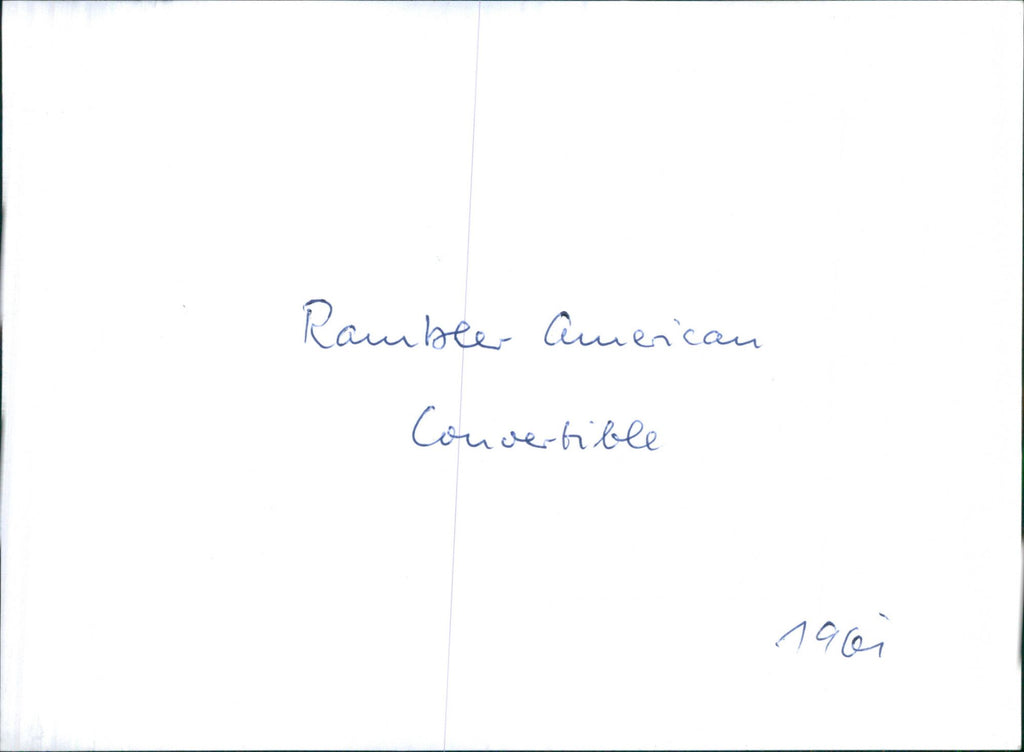 Rambler American
Convertible
1961